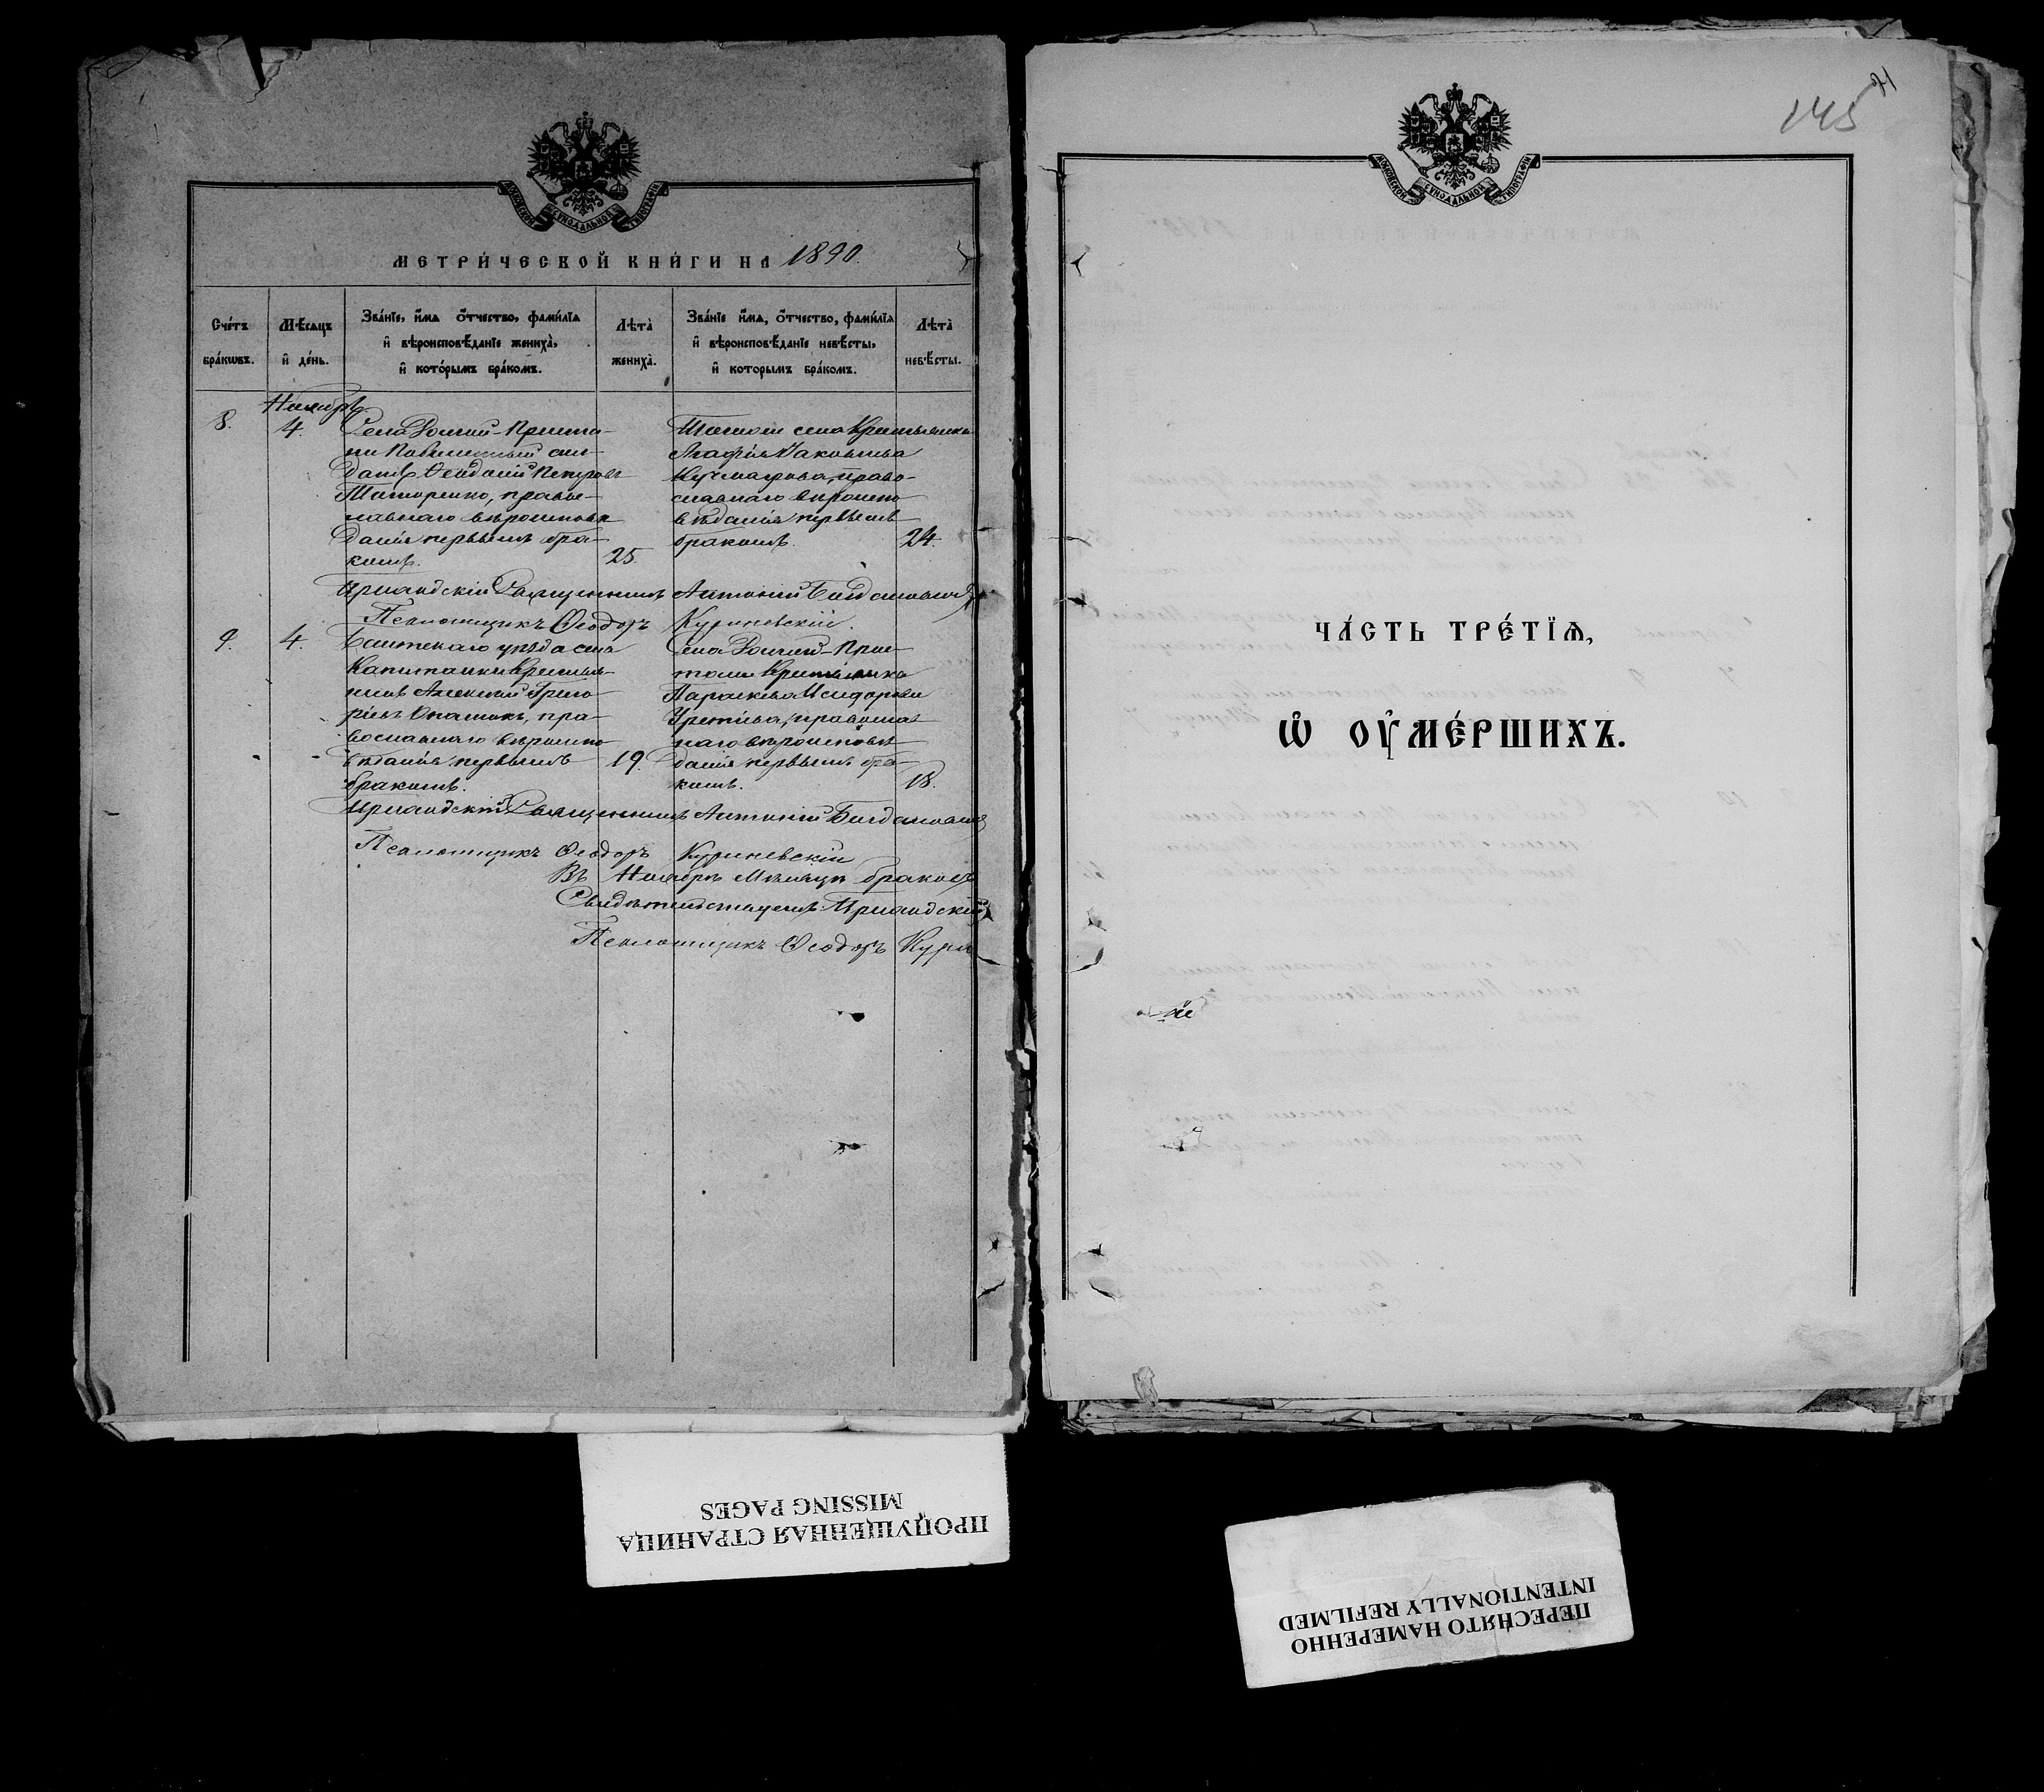 МОСКОВСКОЙ СУНОДАЛЬНОЙ ТИПОГРАФІИ
МЕТРИ́ЧЕСКОЙ КНИ́ГИ НА 1890.
Сче́тъ бра́кѡвъ.
Мѣ́сяцъ и҆ де́нь.
Зва́нїе, и҆́мѧ ѻ҆́тчество, фами́лїѧ
и҆ вѣроисповѣ́данїе жениха̀,
и҆ кото́рымъ бра́комъ.
Лѣта̀ жениха̀.
Зва́нїе и҆́мѧ, ѻ҆́тчество, фами́лїѧ
и҆ вѣроисповѣ́данїе невѣ́сты,
и҆ которымъ бра́комъ.
Лѣта̀ невѣ́сты.
Ноябрь
8.
4.
Села Долгой-Приста-
ни
датъ Ѳеодосій Петровъ
Титоренко, правос-
лавнаго вѣроисповѣ
данія первымъ бра-
комъ.
25.
Тогоже села Крестьянка
Агафія Іаковлева
право-
славнаго вѣроиспо
вѣданія первымъ
бракомъ.
24.
Приходскій Священникъ Антоній Богдановичъ
Псаломщикъ Ѳеодоръ Куриневскій.
9.
4.
Балтскаго уѣзда села
Капитанки Крестья-
нинъ Алексій Григо
ріевъ Опалюкъ, пра-
вославнаго вѣроиспо
вѣданія первымъ
бракомъ.
19.
Села Долгой-Прис-
тани Крестьянка
Параскева Исидорова
православ
наго вѣроисповѣ
данія первымъ бра-
комъ.
18.
Приходскій Священникъ Антоній Богдановичъ
Псаломщикъ Ѳеодоръ Куриневскій
Въ Ноябрѣ Мѣсяцѣ браковъ
Свидѣтельствуемъ: Приходскій
Псаломщикъ Ѳеодоръ Кури
145
МОСКОВСКОЙ СУНОДАЛЬНОЙ ТИПОГРАФІИ
ЧА́СТЬ ТРЕ́ТЇѦ,
Ѡ҆ ОУ҆МЕ́РШИХЪ.
ПРОПУЩЕННАЯ СТРАНИЦА
MISSING PAGES
ПЕРЕСНЯТО НАМЕРЕННО
INTENTIONALLY REFILMED